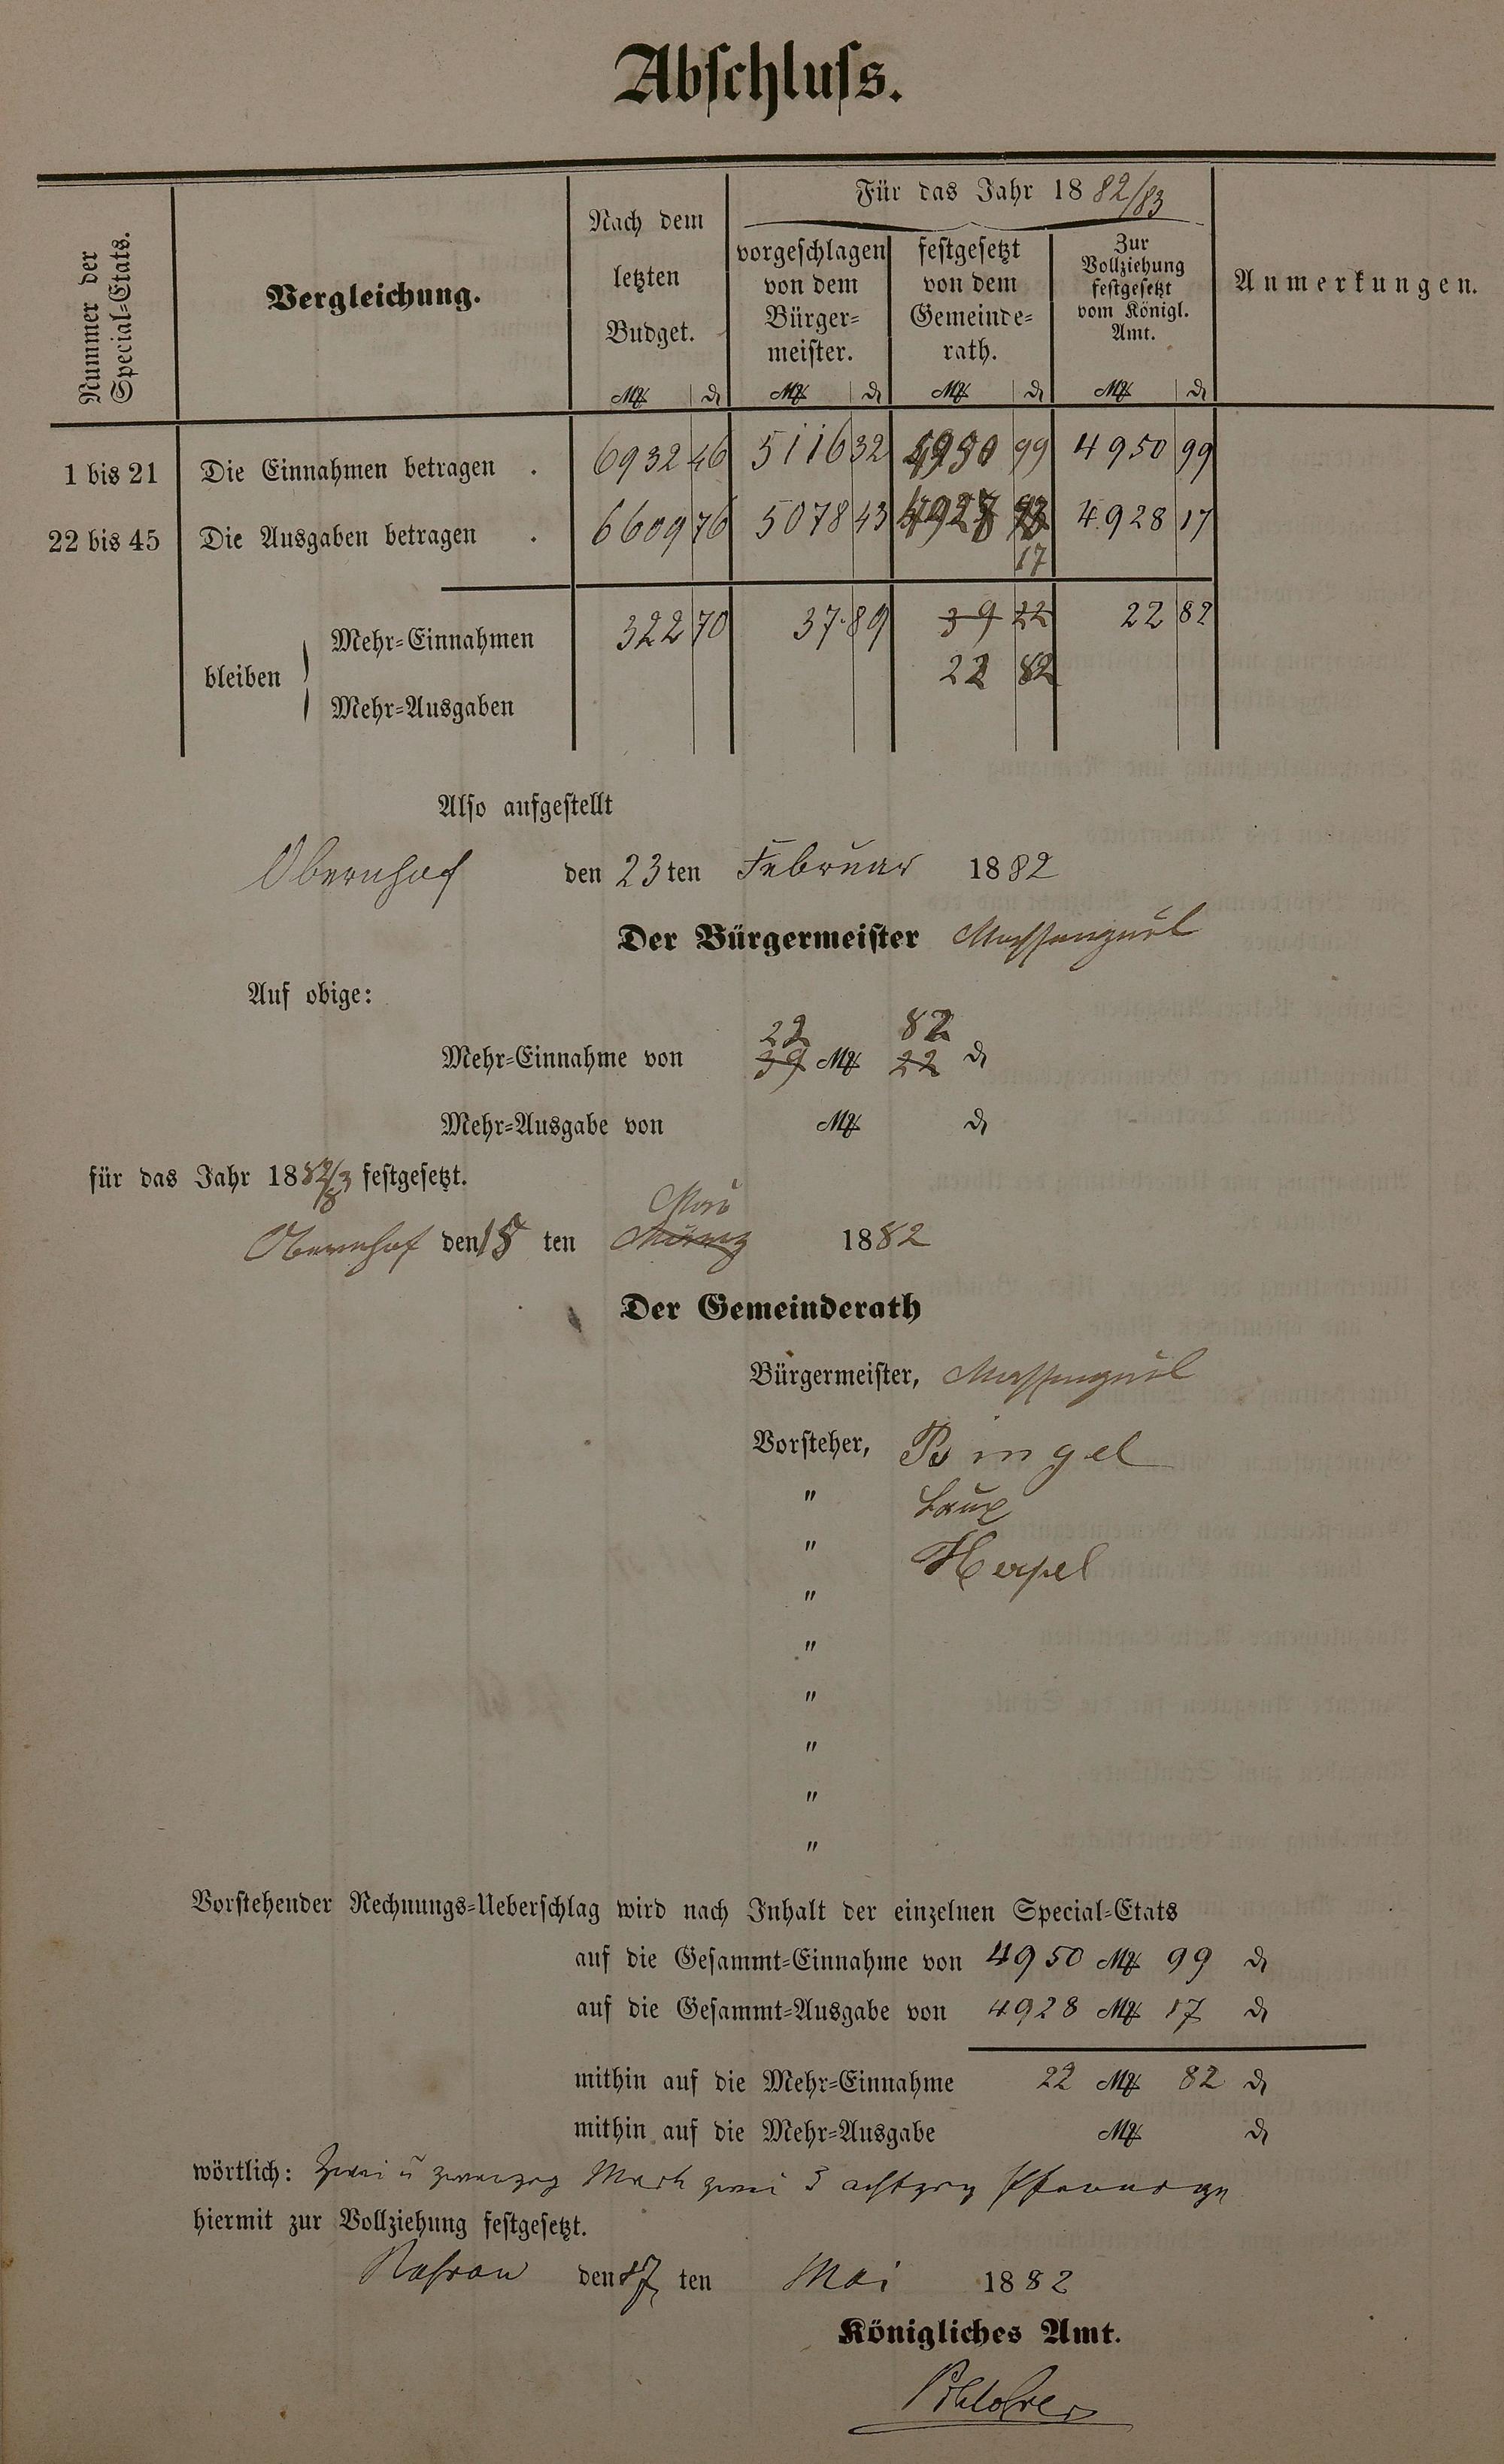 Abschluss.
Nummer der Special-Etats.
Vergleichung.
Nach dem letzten Budget.
Für das Jahr 1882/83
vorgeschlagen von dem Bürger-meister.
festgesetzt von dem Gemeinde-rath.
Zur Vollziehung festgesetzt vom Königl. Amt.
Anmerkungen.
M ₰ M ₰ M ₰ M ₰
1 bis 21 Die Einnahmen betragen . 6932 46 5116 32 4950 99 4950 99
22 bis 45 Die Ausgaben betragen . 6609 76 5078 43 4928 17 4928 17
bleiben
Mehr-Einnahmen 322 70 37 89 39 22 22 82
22 82
Mehr-Ausgaben
Also aufgestellt
Obernhof den 23ten Februar 1882
Der Bürgermeister
Auf obige:
22 82
Mehr-Einnahme von 39 M 22 ₰
Mehr-Ausgabe von M ₰
für das Jahr 1882/83 festgesetzt.
Mai
Obernhof den 15 ten März 1882
Der Gemeinderath
Bürgermeister,
Vorsteher, Bingel
" Laux
" Herpel
"
"
"
"
"
"
Vorstehender Rechnungs-Ueberschlag wird nach Inhalt der einzelnen Special-Etats
auf die Gesammt-Einnahme von 4950 M 99 ₰
auf die Gesammt-Ausgabe von 4928 M 17 ₰
mithin auf die Mehr-Einnahme 22 M 82 ₰
mithin auf die Mehr-Ausgabe M ₰
wörtlich: Zwei u zwanzig Mark zwei u achtzig Pfennige
hiermit zur Vollziehung festgesetzt.
Nassau den 17 ten Mai 1882
Königliches Amt.